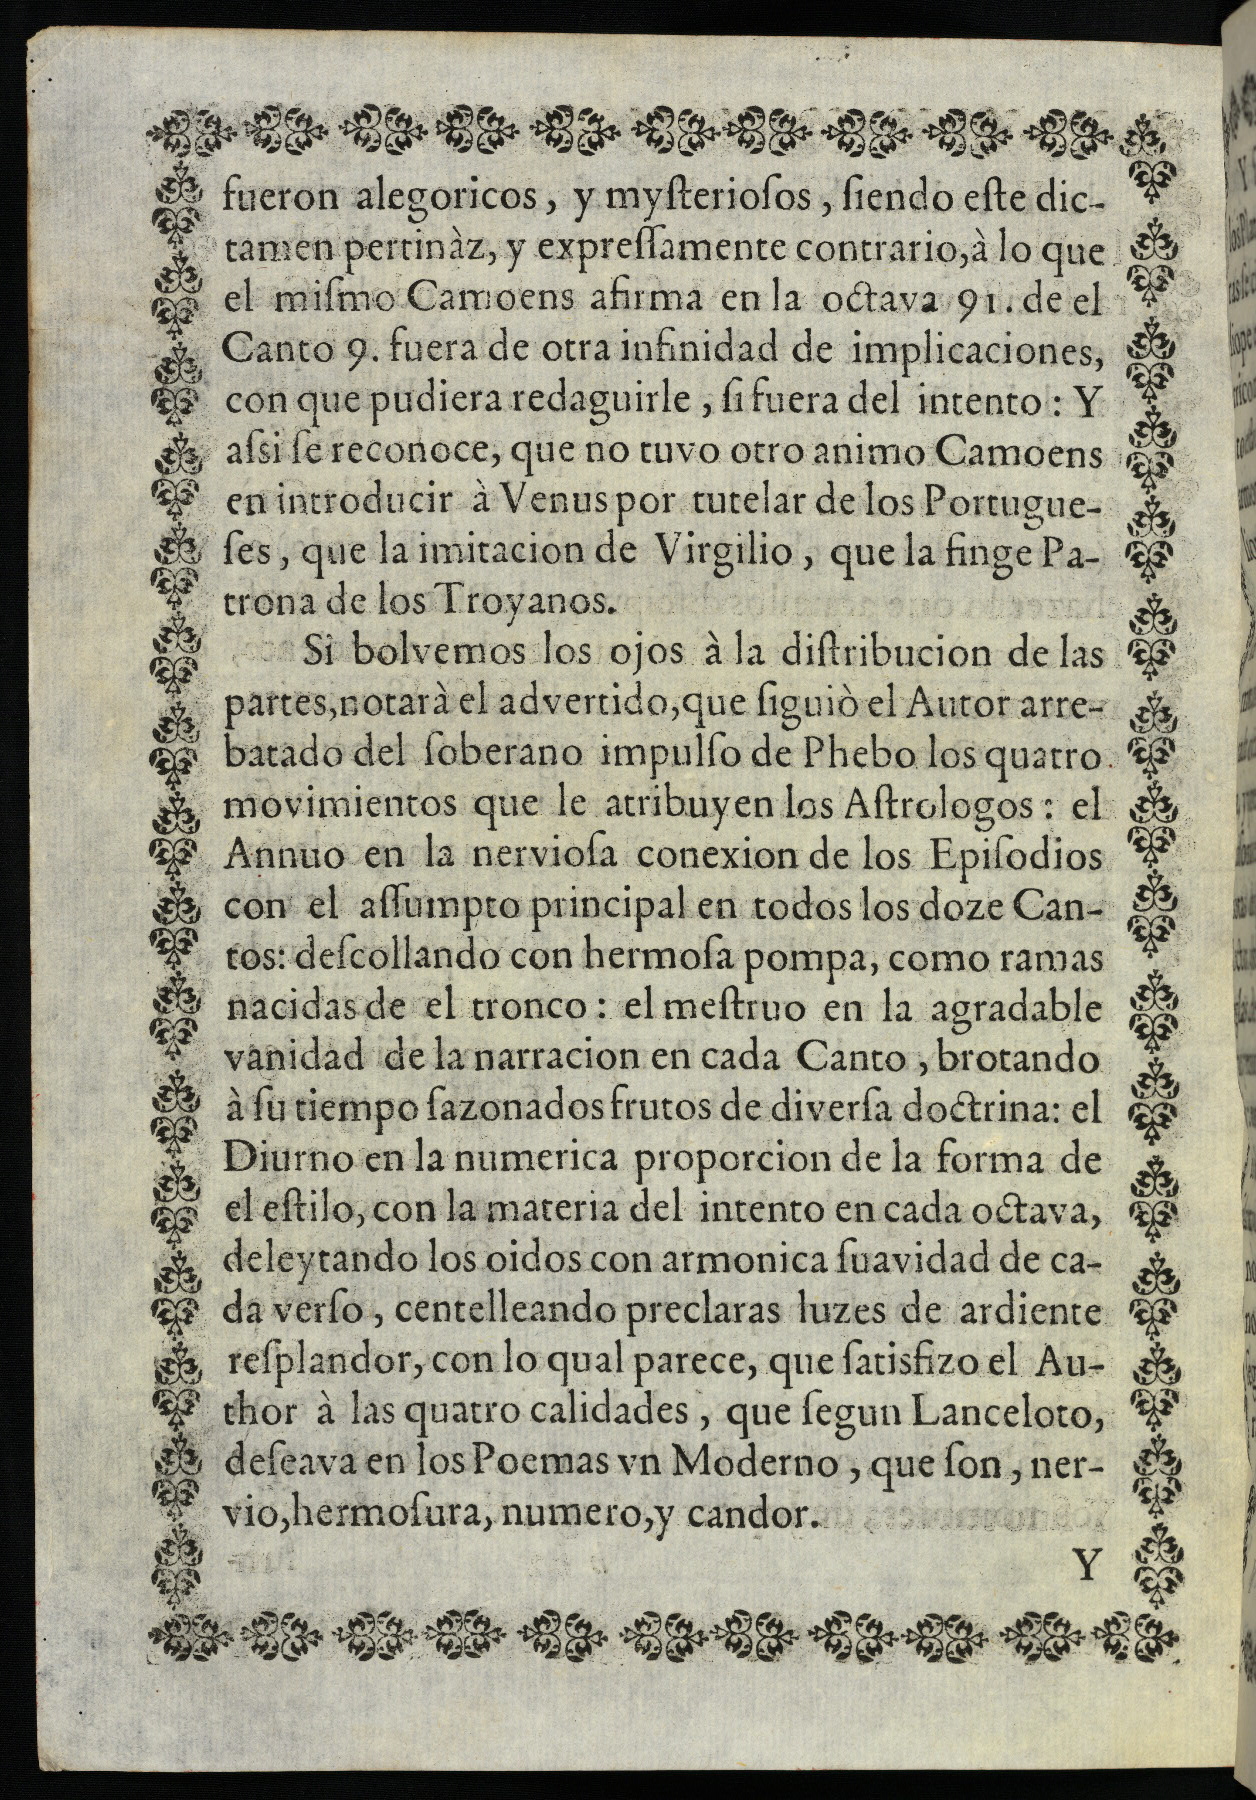 fueron alegoricos, y myſterioſos, ſiendo eſte dic-
tamen pertinàz, y expreſſamente contrario, à lo que
el miſmo Camoens afirma en la octava 91. de el
Canto 9. fuera de otra infinidad de implicaciones,
con que pudiera redaguirle, ſi fuera del intento: Y
aſsi ſe reconoce, que no tuvo otro animo Camoens
en introducir à Venus por tutelar de los Portugue-
ſes, que la imitacion de Virgilio, que la finge Pa-
trona de los Troyanos.
Si bolvemos los ojos à la diſtribucion de las
partes, notarà el advertido, que ſiguiò el Autor arre-
batado del ſoberano impulſo de Phebo los quatro
movimientos que le atribuyen los Aſtrologos: el
Annuo en la nervioſa conexion de los Epiſodios
con el aſſumpto principal en todos los doze Can-
tos: deſcollando con hermoſa pompa, como ramas
nacidas de el tronco: el meſtruo en la agradable
vanidad de la narracion en cada Canto, brotando
à ſu tiempo ſazonados frutos de diverſa doctrina: el
Diurno en la numerica proporcion de la forma de
el eſtilo, con la materia del intento en cada octava,
deleytando los oidos con armonica ſuavidad de ca-
da verſo, centelleando preclaras luzes de ardiente
reſplandor, con lo qual parece, que ſatisfizo el Au-
thor à las quatro calidades, que ſegun Lanceloto,
deſeava en los Poemas vn Moderno, que ſon, ner-
vio, hermoſura, numero, y candor.
Y